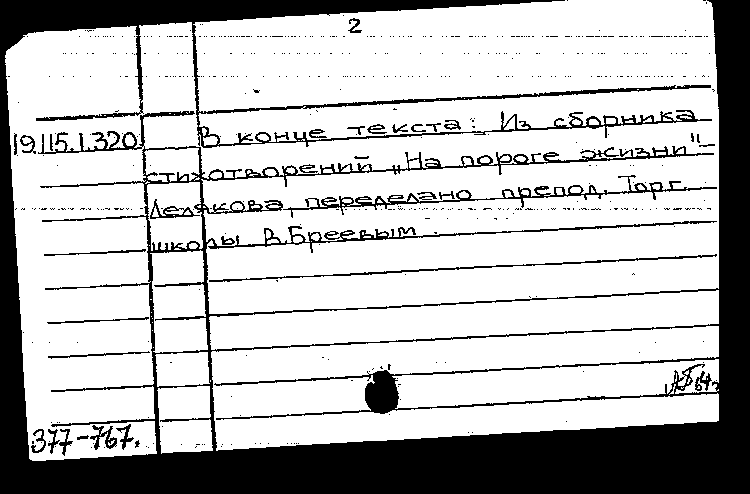 2
19.115.1.320 В конце текста: Из сборника
стихотворений „На пороге жизни"
Лелякова, переделано препод. Торг.
школы В.Бреевым.
377-767.